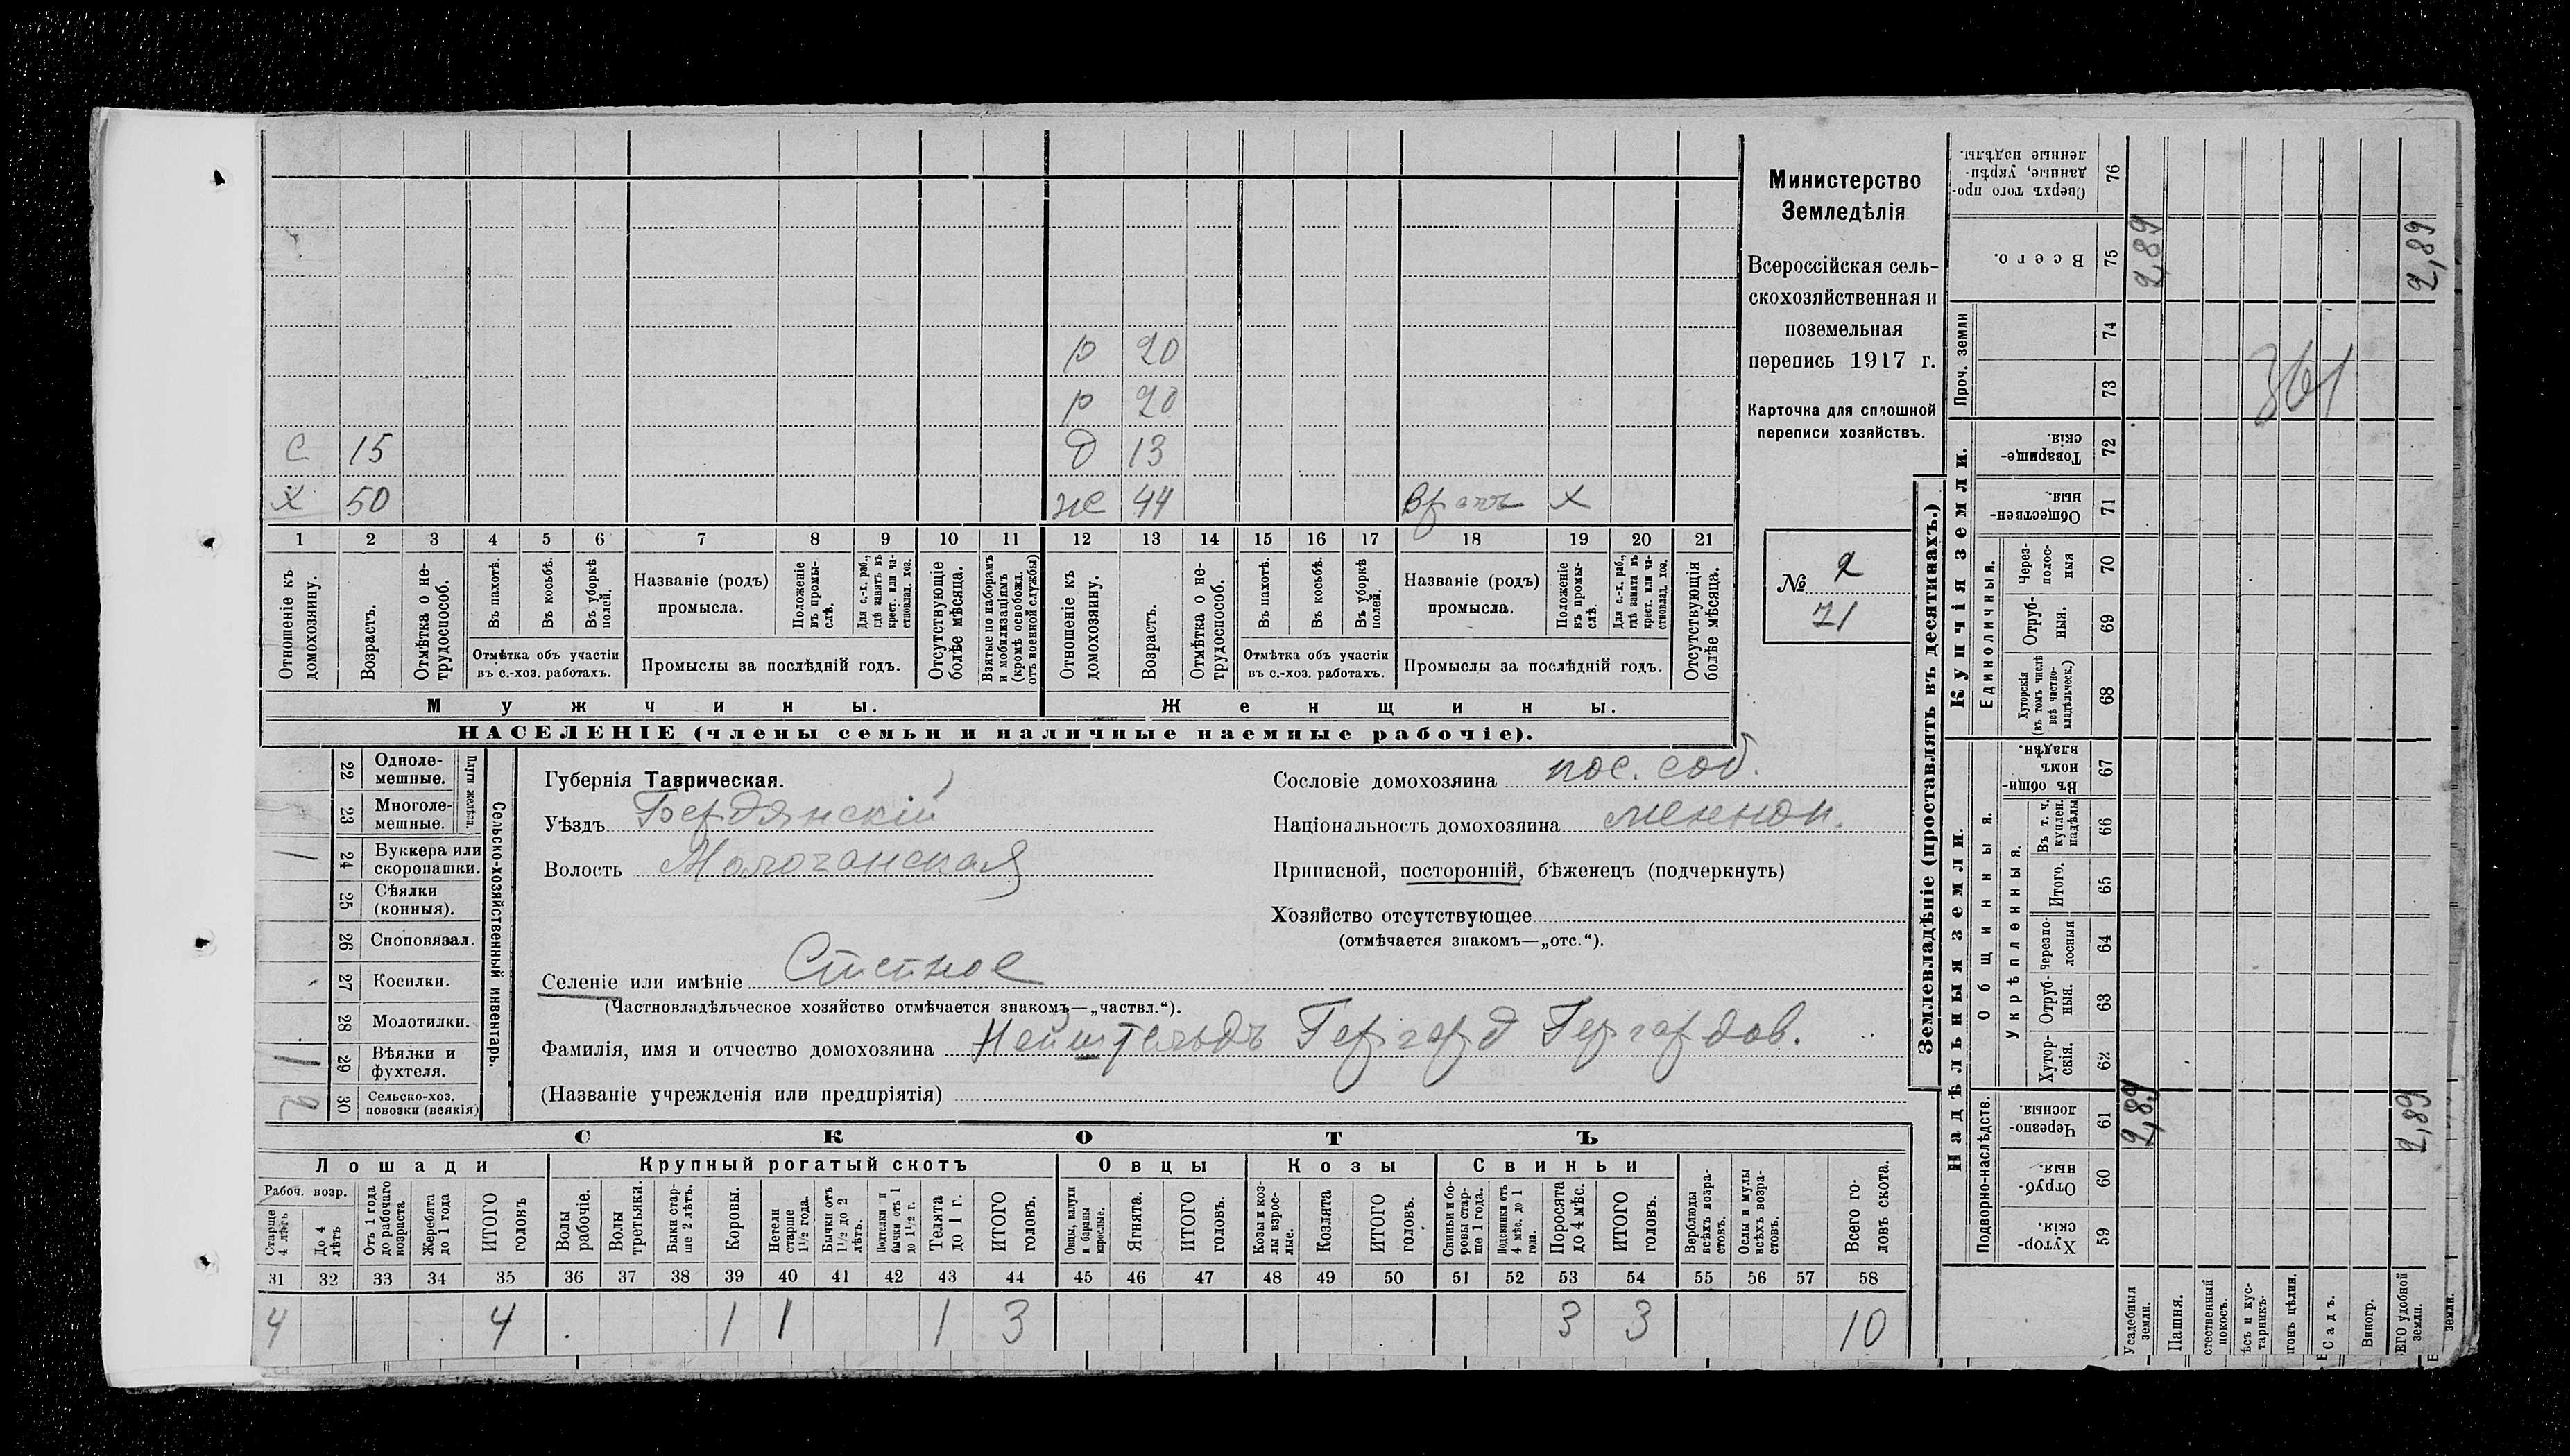 р 20
р 20
С 15 д 13
Х 50 же 44 Врачъ х
1 2 3 4 5 6 7 8 9 10 11 12 13 14 15 16 17 18 19 20 21
Отношеніе къ домохозяину.
Возрастъ.
Отмѣтка о нетрудоспособ.
Въ пахотѣ.
Въ косьбѣ.
Въ уборкѣ полей.
Отмѣтка объ участіи
въ с.-хоз. работахъ.
Названіе (родъ)
промысла.
Положеніе въ промыслѣ.
Для с.-х. раб., гдѣ занятъ въ крест. или частновлад. хоз.
Промыслы за послѣдній годъ.
Отсутствующіе болѣе мѣсяца.
Взятые по наборамъ и мобилизаціямъ (кромѣ освобожд. отъ военной службы)
Отношеніе къ домохозяину.
Возрастъ.
Отмѣтка о нетрудоспособ.
Въ пахотѣ.
Въ косьбѣ.
Въ уборкѣ полей.
Отмѣтка объ участіи
въ с.-хоз. работахъ.
Названіе (родъ)
промысла.
Положеніе въ промыслѣ.
Для с.-х. раб., гдѣ занята въ крест. или частновлад. хоз.
Промыслы за послѣдній годъ.
Отсутствующія болѣе мѣсяца.
Мужчины. Женщины.
НАСЕЛЕНІЕ (члены семьи и наличные наемные рабочіе).
Министерство
Земледѣлія
Всероссійская сель-
скохозяйственная и
поземельная
перепись 1917 г.
Карточка для сплошной
переписи хозяйствъ.
№ 2
71
22 Одноле-
мешные.
23 Многоле-
мешные.
Плуги желѣзн.
1 24 Буккера или
скоропашки.
25 Сѣялки
(конныя).
26 Сноповязал.
27 Косилки.
28 Молотилки.
1 29 Вѣялки и
фухтеля.
2 30 Сельско-хоз.
повозки (всякія)
Сельско-хозяйственный инвентарь.
Губернія Таврическая.
Уѣздъ Бердянскій
Волость Молочанская
Селеніе или имѣніе
(Частновладѣльческое хозяйство отмѣчается знакомъ—„частвл.“).
Фамилія, имя и отчество домохозяина Нейштедъ Гергард Гергардов.
(Названіе учрежденія или предпріятія)
Сословіе домохозяина пос. соб.
Національность домохозяина меннон.
Приписной, посторонній, бѣженецъ (подчеркнуть)
Хозяйство отсутствующее
(отмѣчается знакомъ—„отс.“).
СКОТЪ
Лошади Крупный рогатый скотъ Овцы Козы Свиньи
Рабоч. возр.
Старше 4 лѣтъ
До 4 лѣтъ
Отъ 1 года до рабочаго возраста
Жеребята до 1 года
ИТОГО головъ
Волы рабочіе.
Волы третьяки.
Быки старше 2 лѣтъ.
Коровы.
Нетели старше 1½ года.
Бычки отъ 1½ до 2 лѣтъ.
Подтелки и бычки отъ 1 до 1½ г.
Телята до 1 г.
ИТОГО головъ.
Овцы, валухи и бараны взрослые.
Ягнята.
ИТОГО головъ.
Козы и козлы взрослые.
Козлята
ИТОГО головъ.
Свиньи и боровы старше 1 года.
Подсвинки отъ 4 мѣс. до 1 года.
Поросята до 4 мѣс.
ИТОГО головъ.
Верблюды всѣхъ возрастовъ.
Ослы и мулы всѣхъ возрастовъ.
Всего головъ скота.
31 32 33 34 35 36 37 38 39 40 41 42 43 44 45 46 47 48 49 50 51 52 53 54 55 56 57 58
4 4 1 1 1 3 3 3 10
Землевладѣніе (проставлять въ десятинахъ.)
Надѣльныя земли. Купчія земли. Проч. земли
Подворно-наслѣдств. Общинныя. Укрѣпленныя. Единоличныя.
Сверхъ того проданные, укрѣпленные надѣлы. 76
Всего. 75 2,89 2,89
74
73 361
Товарищескія. 72
Общественныя. 71
Черезполосныя 70
Отрубныя. 69
Хуторскія (въ томъ числѣ всѣ частновладѣльческ.) 68
Въ общинномъ владѣн. 67
Въ т. ч. куплен. надѣлы 66
Итого. 65
Черезполосныя 64
Отрубныя. 63
Хуторскія. 62
Черезполосныя. 61 2,89 2,89
Отрубныя. 60
Хуторскія. 59
Усадебныя земли.
Пашня.
стественный покосъ.
ѣсъ и кустарникъ.
гонъ цѣлин.
Садъ.
Виногр.
ЕГО удобной земли.
земли.